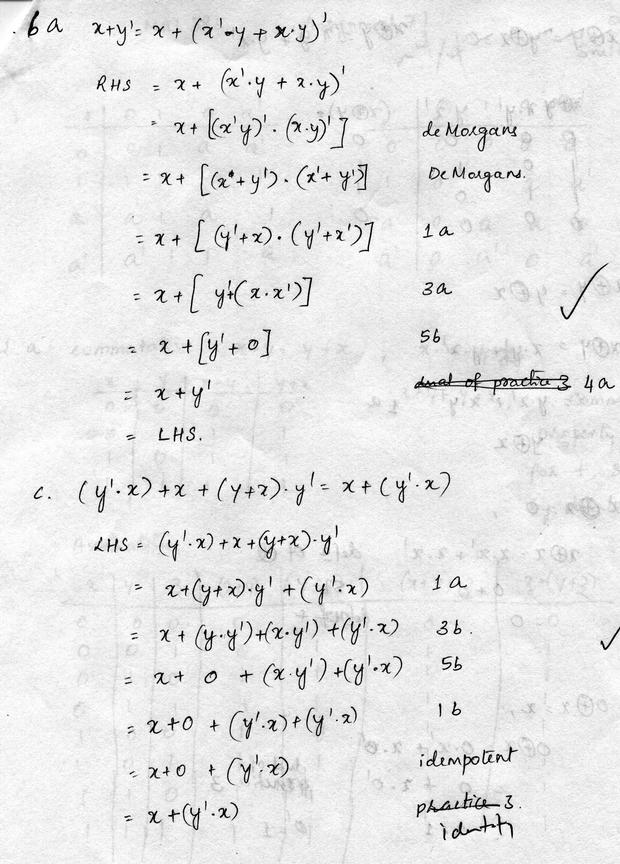 . 6 a x+y' = x + (x'·y + x·y)'
RHS = x + (x'·y + x·y)'
= x + [(x'y)' · (x·y)'] deMorgans
= x + [(x+y') · (x'+y')] DeMorgans.
= x + [(y'+x) · (y'+x')] 1a
= x + [y'+(x·x')] 3a
= x + [y'+0] 5b
= x+y' dual of practice 3 4a
= LHS.
c. (y'·x)+x+(y+x)·y' = x+(y'·x)
LHS = (y'·x)+x+(y+x)·y'
= x+(y+x)·y' + (y'·x) 1a
= x + (y·y')+(x·y') + (y'·x) 3b.
= x + 0 + (x·y')+(y'·x) 5b
= x+0 + (y'·x)+(y'·x) 1b
= x+0 + (y'·x) idempotent
= x+(y'·x) practice 3.
identity